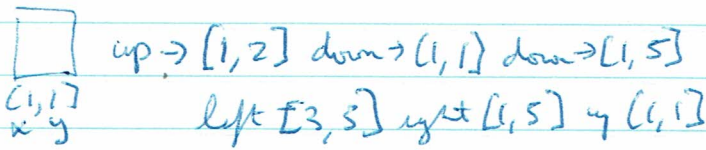 up → [1,2] down → (1,1] down → [1,5]
(1,1]
x y
left [3,5] right [1,5] up (1,1]